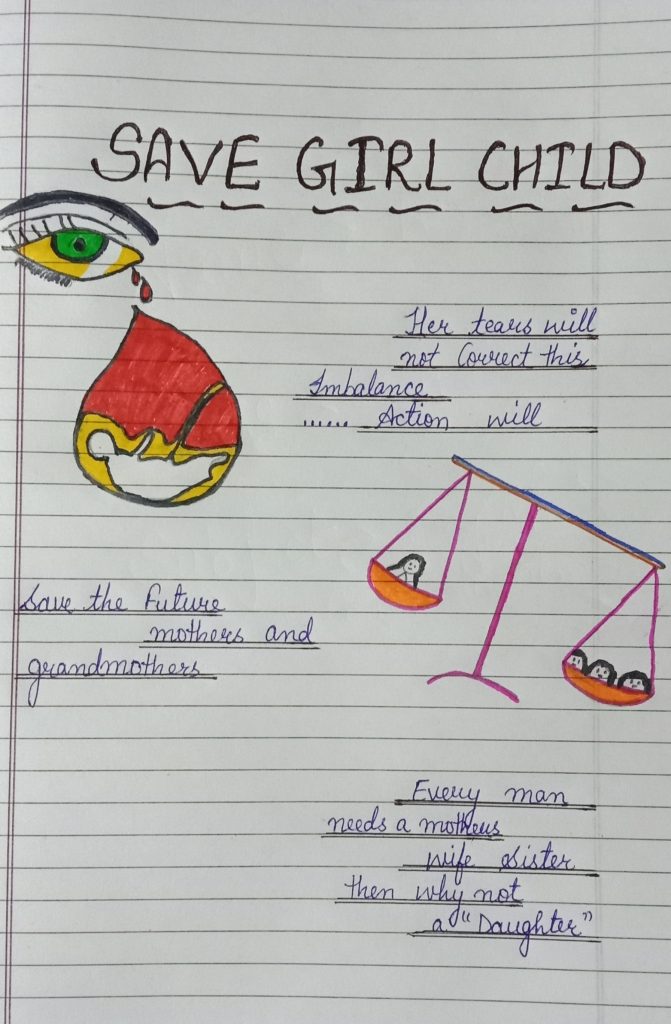 SAVE GIRL CHILD
Her tears will
not Correct this
Imbalance
...... Action will
Save the Future
mothers and
grandmothers
Every man
needs a mothers
wife sister
then why not
a "Daughter"